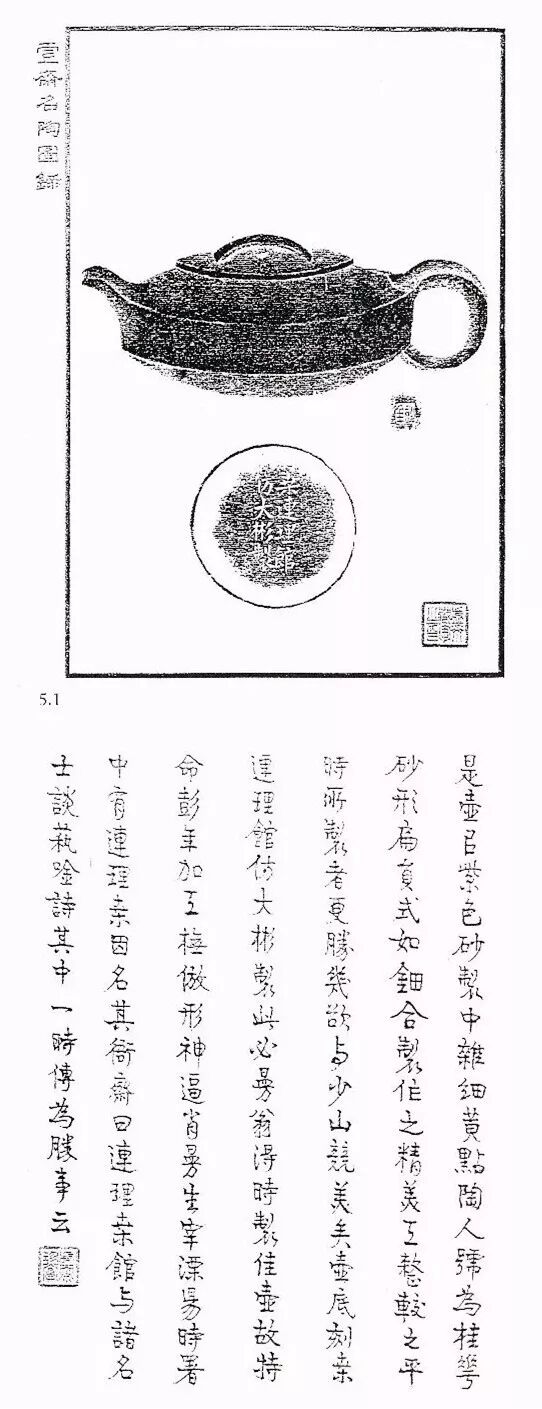 齋名陶圖錄
桒連理館
仿大彬製
5.1
是壺㠯紫色砂製中雜細黃點陶人號為桂華
砂形扁員式如鈿合製作之精美工整較之平
時所製者更勝幾欲与少山競美矣壺底刻桒
連理館仿大彬製此必曼翁得時製佳壺故特
命彭年加工橅倣形神逼肖曼生宰溧陽時署
中有連理桒因名其衙齋曰連理桒館与諸名
士談蓺唫詩其中一時傳為勝事云